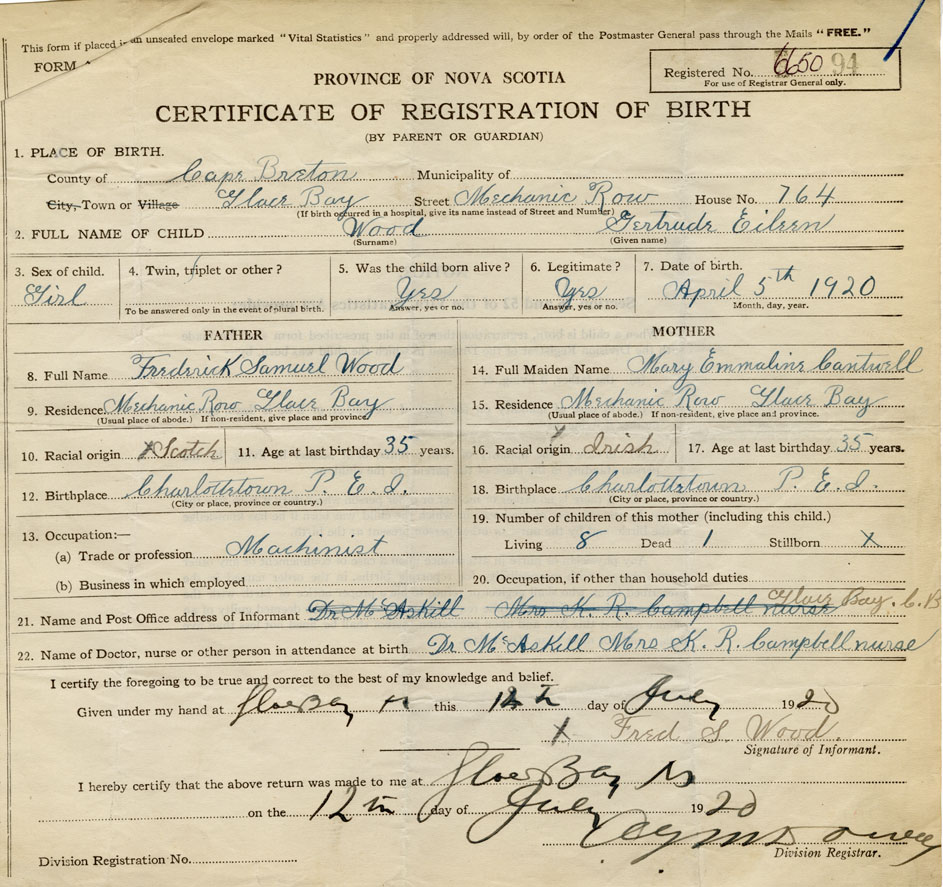 This form if placed in an unsealed envelope marked "Vital Statistics" and properly addressed will, by order of the Postmaster General pass through the Mails "FREE."
FORM
Registered No. 6650 94
For use of Registrar General only.
PROVINCE OF NOVA SCOTIA
CERTIFICATE OF REGISTRATION OF BIRTH
(BY PARENT OR GUARDIAN)
1. PLACE OF BIRTH.
County of Cape Breton Municipality of
City, Town or Village Glace Bay Street Mechanic Row House No. 764
(If birth occurred in a hospital, give its name instead of Street and Number)
2. FULL NAME OF CHILD Wood Gertrude Eileen
(Surname) (Given name)
3. Sex of child. 4. Twin, triplet or other? 5. Was the child born alive? 6. Legitimate? 7. Date of birth.
Girl Yes Yes April 5th 1920
To be answered only in the event of plural birth. Answer, yes or no. Answer, yes or no. Month, day, year.
FATHER
8. Full Name Frederick Samuel Wood
9. Residence Mechanic Row Glace Bay
(Usual place of abode.) If non-resident, give place and province
10. Racial origin Scotch 11. Age at last birthday 35 years.
12. Birthplace Charlottetown P. E. I.
(City or place, province or country.)
13. Occupation:—
(a) Trade or profession Machinist
(b) Business in which employed
MOTHER
14. Full Maiden Name Mary Emmaline Cantwell
15. Residence Mechanic Row Glace Bay
(Usual place of abode.) If non-resident, give place and province.
16. Racial origin Irish 17. Age at last birthday 35 years.
18. Birthplace Charlottetown P. E. I.
(City or place, province or country.)
19. Number of children of this mother (including this child.)
Living 8 Dead 1 Stillborn X
20. Occupation, if other than household duties
Glace Bay. C. B
21. Name and Post Office address of Informant Dr McAskill Mrs K. R. Campbell nurse
22. Name of Doctor, nurse or other person in attendance at birth Dr McAskill Mrs K. R. Campbell nurse
I certify the foregoing to be true and correct to the best of my knowledge and belief.
Given under my hand at Glace Bay this 12th day of July 1920
X Fred S. Wood.
Signature of Informant.
I hereby certify that the above return was made to me at Glace Bay NS
on the 12th day of July 1920
Division Registrar.
Division Registration No.